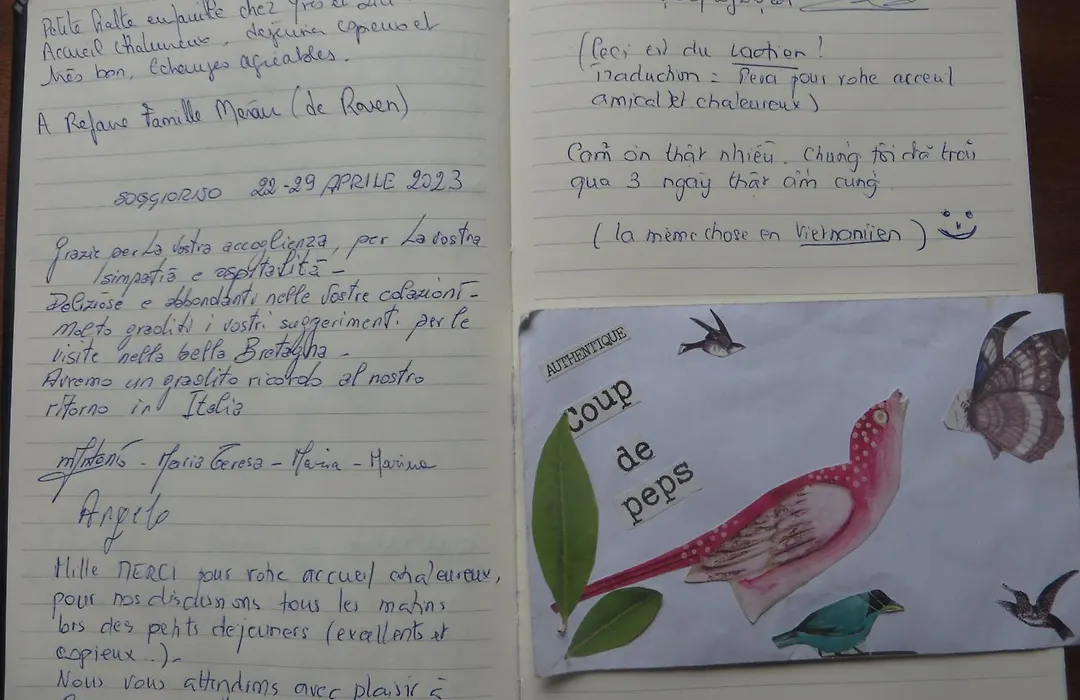 Petite halte en famille chez Yves et
Accueil chaleureux, dejeuner copieux et
très bon. Echanges agréables.
A Refaire Famille (de Rouen)
SOGGIORNO 22-29 APRILE 2023
Grazie per la vostra accoglienza, per la vostra
simpatia e ospitalità -
Deliziose e abbondanti nelle vostre colazioni -
Molto graditi i vostri suggerimenti per le
visite nella bella Bretagna -
Avremo un gradito ricordo al nostro
ritorno in Italia
- Maria Teresa - Maria - Marina
Angelo
Mille MERCI pour votre accueil chaleureux,
pour nos discussions tous les matins
lors des petits dejeuners (excellents et
copieux..)-
Nous vous attendons avec plaisir à
(Ceci est du Laotien!
Traduction = Merci pour votre acceuil
amical et chaleureux)
Cảm ơn thật nhiều. Chúng tôi đã trải
qua 3 ngày thật ấm cúng
(la même chose en Vietnamien)
AUTHENTIQUE
Coup
de
peps